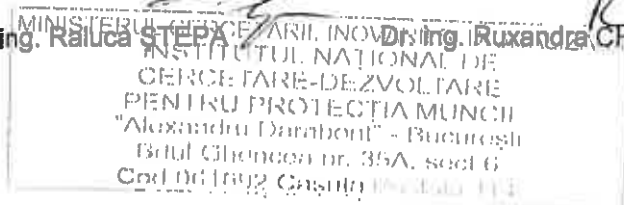 ing. Raluca ȘTEPA Dr. ing. Ruxandra
MINISTERUL CERCETĂRII, INOVĂRII
INSTITUTUL NAȚIONAL DE
CERCETARE-DEZVOLTARE
PENTRU PROTECȚIA MUNCII
"Alexandru Darabont" - București
Bdul Ghencea nr. 35A, sect 6
Cod 061692 Căsuța